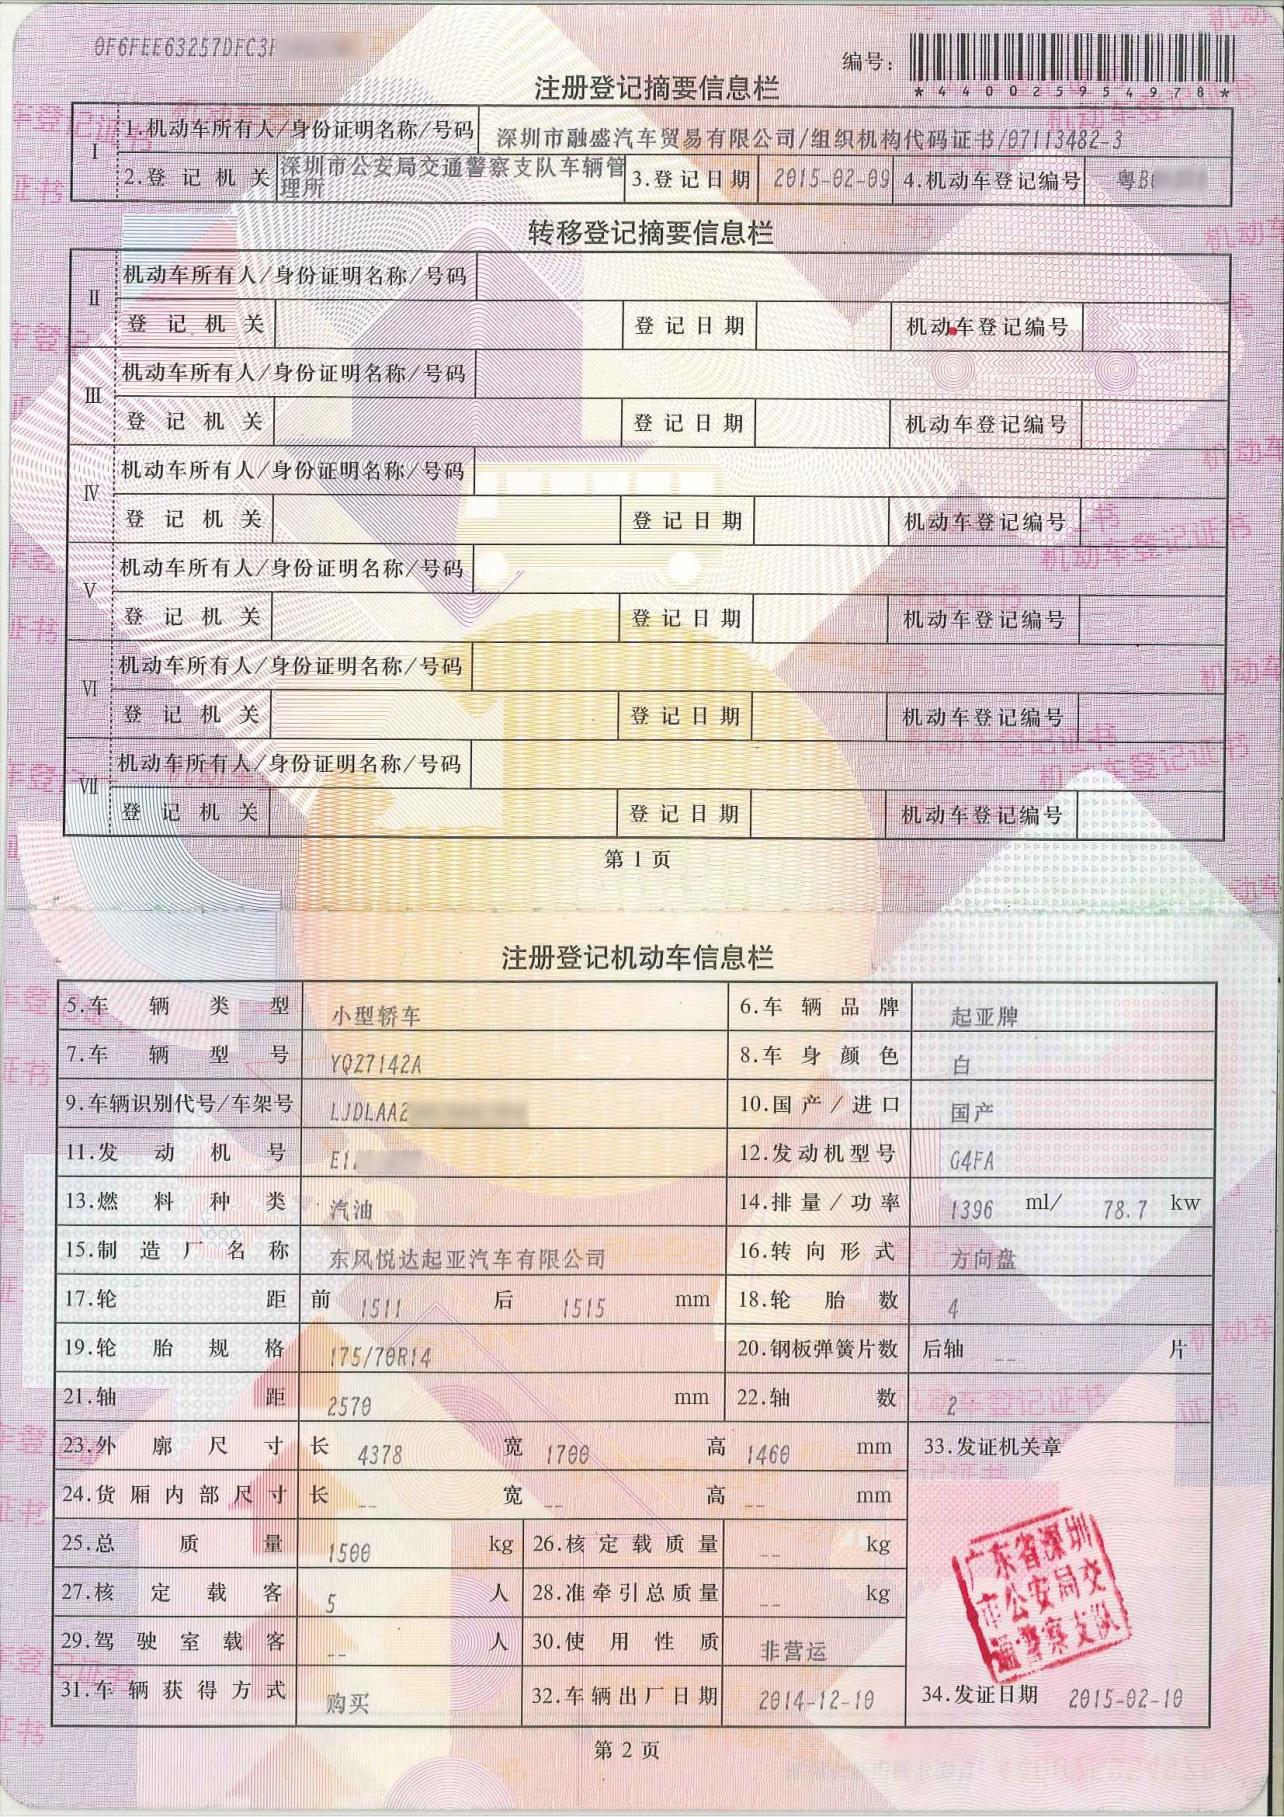 0F6FEE63257DFC3
编号：
*440025954978*
注册登记摘要信息栏
Ⅰ 1.机动车所有人/身份证明名称/号码 深圳市融盛汽车贸易有限公司/组织机构代码证书/07113482-3
2.登记机关 深圳市公安局交通警察支队车辆管理所 3.登记日期 2015-02-09 4.机动车登记编号 粤B
转移登记摘要信息栏
Ⅱ 机动车所有人/身份证明名称/号码
登记机关 登记日期 机动车登记编号
Ⅲ 机动车所有人/身份证明名称/号码
登记机关 登记日期 机动车登记编号
Ⅳ 机动车所有人/身份证明名称/号码
登记机关 登记日期 机动车登记编号
Ⅴ 机动车所有人/身份证明名称/号码
登记机关 登记日期 机动车登记编号
Ⅵ 机动车所有人/身份证明名称/号码
登记机关 登记日期 机动车登记编号
Ⅶ 机动车所有人/身份证明名称/号码
登记机关 登记日期 机动车登记编号
第 1 页
注册登记机动车信息栏
5.车辆类型 小型轿车 6.车辆品牌 起亚牌
7.车辆型号 YQZ7142A 8.车身颜色 白
9.车辆识别代号/车架号 LJDLAA2 10.国产/进口 国产
11.发动机号 E1 12.发动机型号 G4FA
13.燃料种类 汽油 14.排量/功率 1396 ml/ 78.7 kw
15.制造厂名称 东风悦达起亚汽车有限公司 16.转向形式 方向盘
17.轮距 前 1511 后 1515 mm 18.轮胎数 4
19.轮胎规格 175/70R14 20.钢板弹簧片数 后轴 -- 片
21.轴距 2570 mm 22.轴数 2
23.外廓尺寸 长 4378 宽 1700 高 1460 mm 33.发证机关章
24.货厢内部尺寸 长 -- 宽 -- 高 -- mm
25.总质量 1500 kg 26.核定载质量 -- kg
27.核定载客 5 人 28.准牵引总质量 -- kg
29.驾驶室载客 -- 人 30.使用性质 非营运
广东省深圳
市公安局交
通警察支队
31.车辆获得方式 购买 32.车辆出厂日期 2014-12-10 34.发证日期 2015-02-10
第 2 页